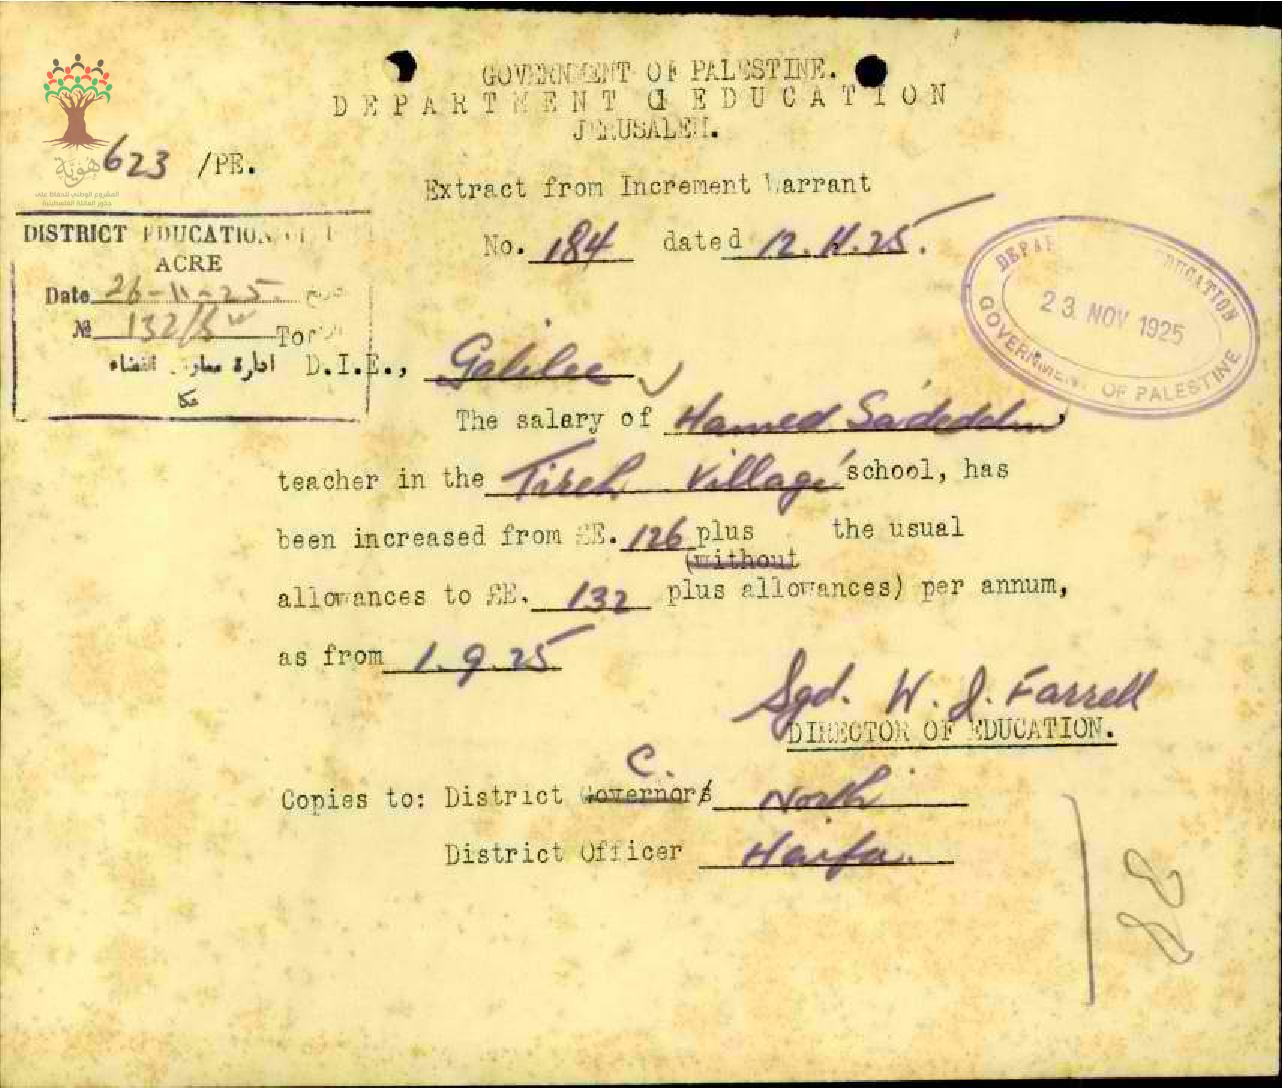 GOVERNMENT OF PALESTINE.
DEPARTMENT OF EDUCATION
JERUSALEM.
هوية
المشروع الوطني للحفاظ على
جذور العائلة الفلسطينية
623 /PE.
Extract from Increment Warrant
No. 184 dated 12.11.25.
DISTRICT EDUCATION
ACRE
Date 26-11-25.
№ 132/5
ادارة معارف القضاء
عكا
DEPAR EDUCATION
23 NOV 1925
GOVERNMENT OF PALESTINE
To
D.I.E., Galilee
The salary of Hamed Sa'deddin
teacher in the Tireh Village school, has
been increased from £E. 126 plus the usual
(without
allowances to £E. 132 plus allowances) per annum,
as from 1.9.25
Sgd. W. J. Farrell
DIRECTOR OF EDUCATION.
C.
Copies to: District Governor/s North
District Officer Haifa.
28